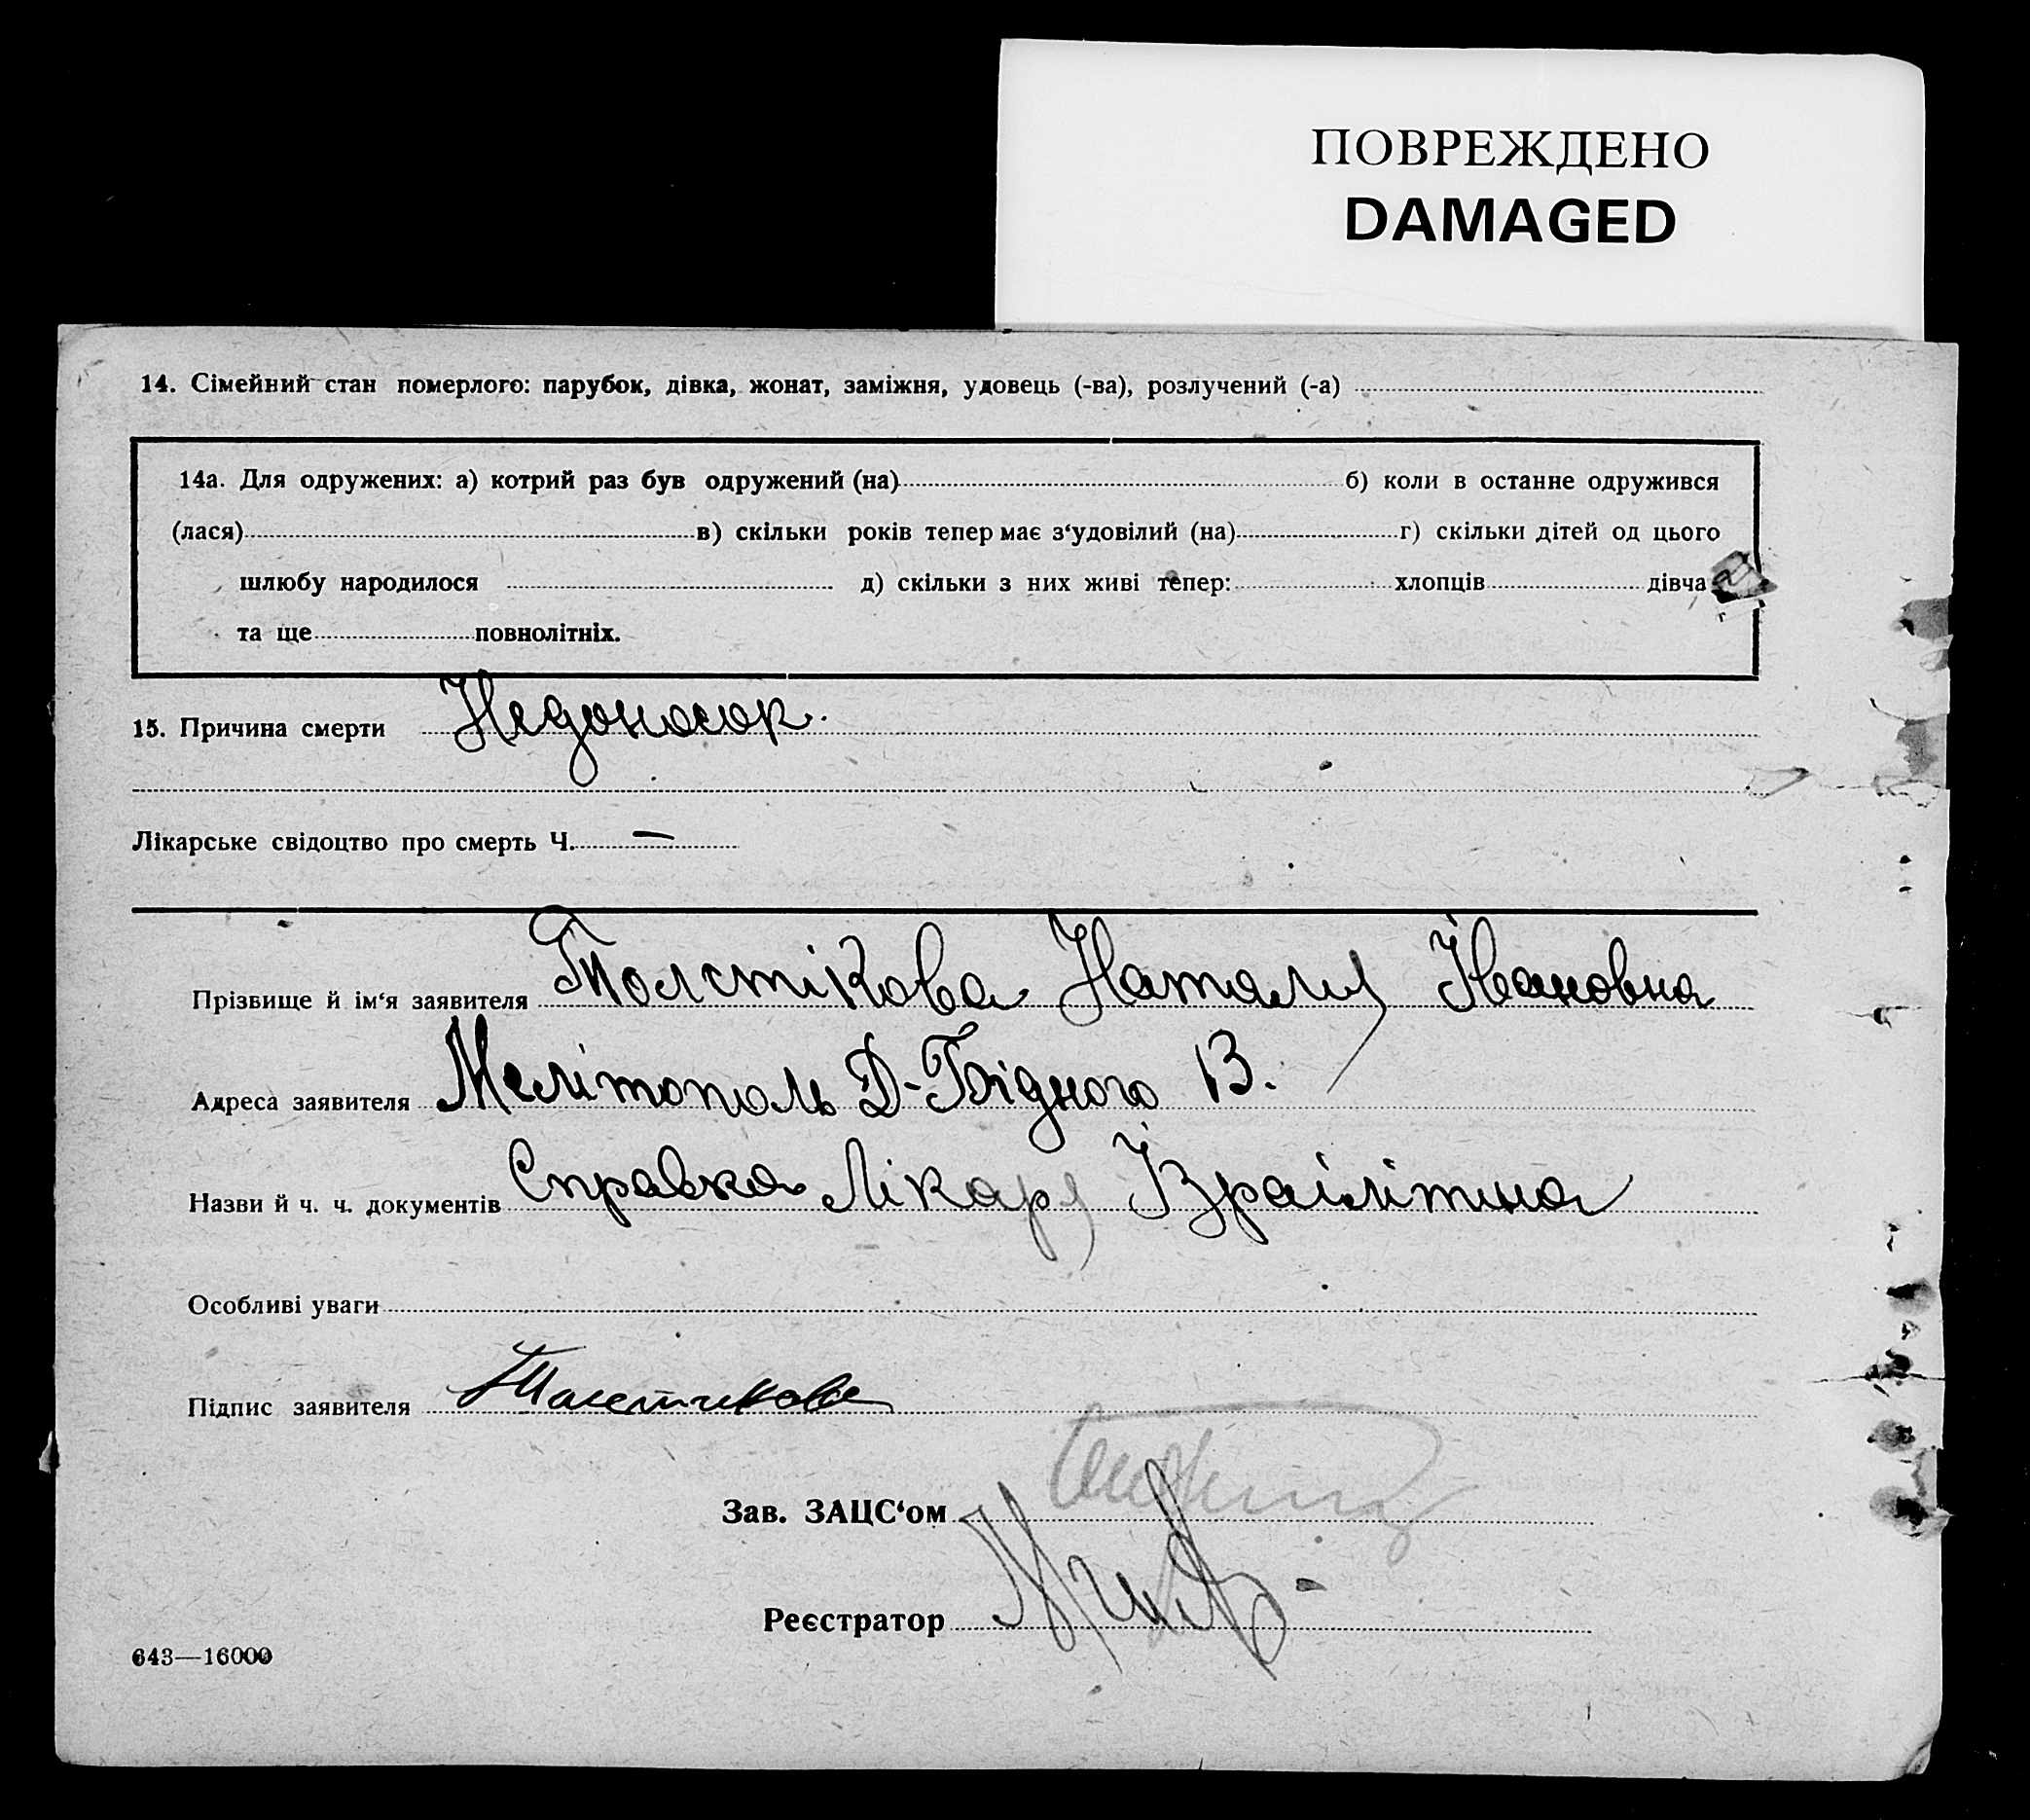 ПОВРЕЖДЕНО
DAMAGED
14. Сімейний стан померлого: парубок, дівка, жонат, заміжня, удовець (-ва), розлучений (-а)
14а. Для одружених: а) котрий раз був одружений (на) б) коли в останне одружився
(лася) в) скільки років тепер має з‘удовілий (на) г) скільки дітей од цього
шлюбу народилося д) скільки з них живі тепер: хлопців дівча
та ще повнолітніх.
15. Причина смерти Недоносок.
Лікарське свідоцтво про смерть Ч. —
Прізвище й ім‘я заявителя Толстікова Наталя Івановна
Адреса заявителя Мелітополь Д-Бідного 13.
Назви й ч. ч. документів Справка Лікаря Ізраілітина
Особливі уваги
Підпис заявителя Толстикова
Зав. ЗАЦС‘ом
Реєстратор
643—16000